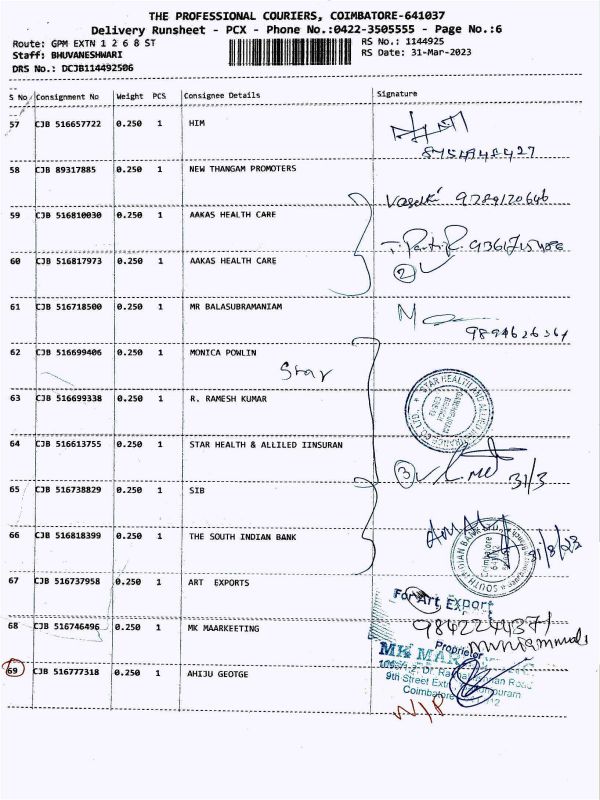 THE PROFESSIONAL COURIERS, COIMBATORE-641037
Delivery Runsheet - PCX - Phone No.:0422-3505555 - Page No.:6
Route: GPM EXTN 1 2 6 8 ST
RS No.: 1144925
Staff: BHUVANESHWARI
RS Date: 31-Mar-2023
DRS No.: DCJB114492506
S No Consignment No Weight PCS Consignee Details Signature
57 CJB 516657722 0.250 1 HIM
8754948427
58 CJB 89317885 0.250 1 NEW THANGAM PROMOTERS
9289120646
59 CJB 516810030 0.250 1 AAKAS HEALTH CARE
60 CJB 516817973 0.250 1 AAKAS HEALTH CARE
2
61 CJB 516718500 0.250 1 MR BALASUBRAMANIAM
9894626361
62 CJB 516699406 0.250 1 MONICA POWLIN
Star
63 CJB 516699338 0.250 1 R. RAMESH KUMAR
STAR HEALTH AND ALLIED
64 CJB 516613755 0.250 1 STAR HEALTH & ALLILED IINSURAN
3
31/3
65 CJB 516738829 0.250 1 SIB
66 CJB 516818399 0.250 1 THE SOUTH INDIAN BANK
Coimbatore
67 CJB 516737958 0.250 1 ART EXPORTS
For Art Export
68 CJB 516746496 0.250 1 MK MAARKEETING
Proprietor
69 CJB 516777318 0.250 1 AHIJU GEOTGE
9th Street
Coimbatore
N/P